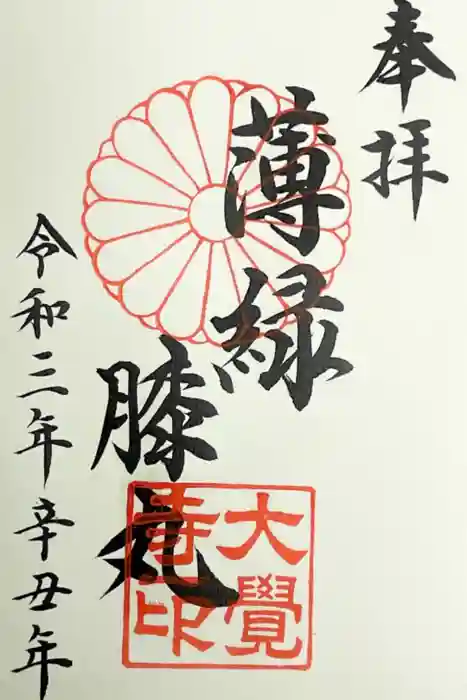 奉拝
薄緑
膝丸
令和三年辛丑年
大覺
寺印